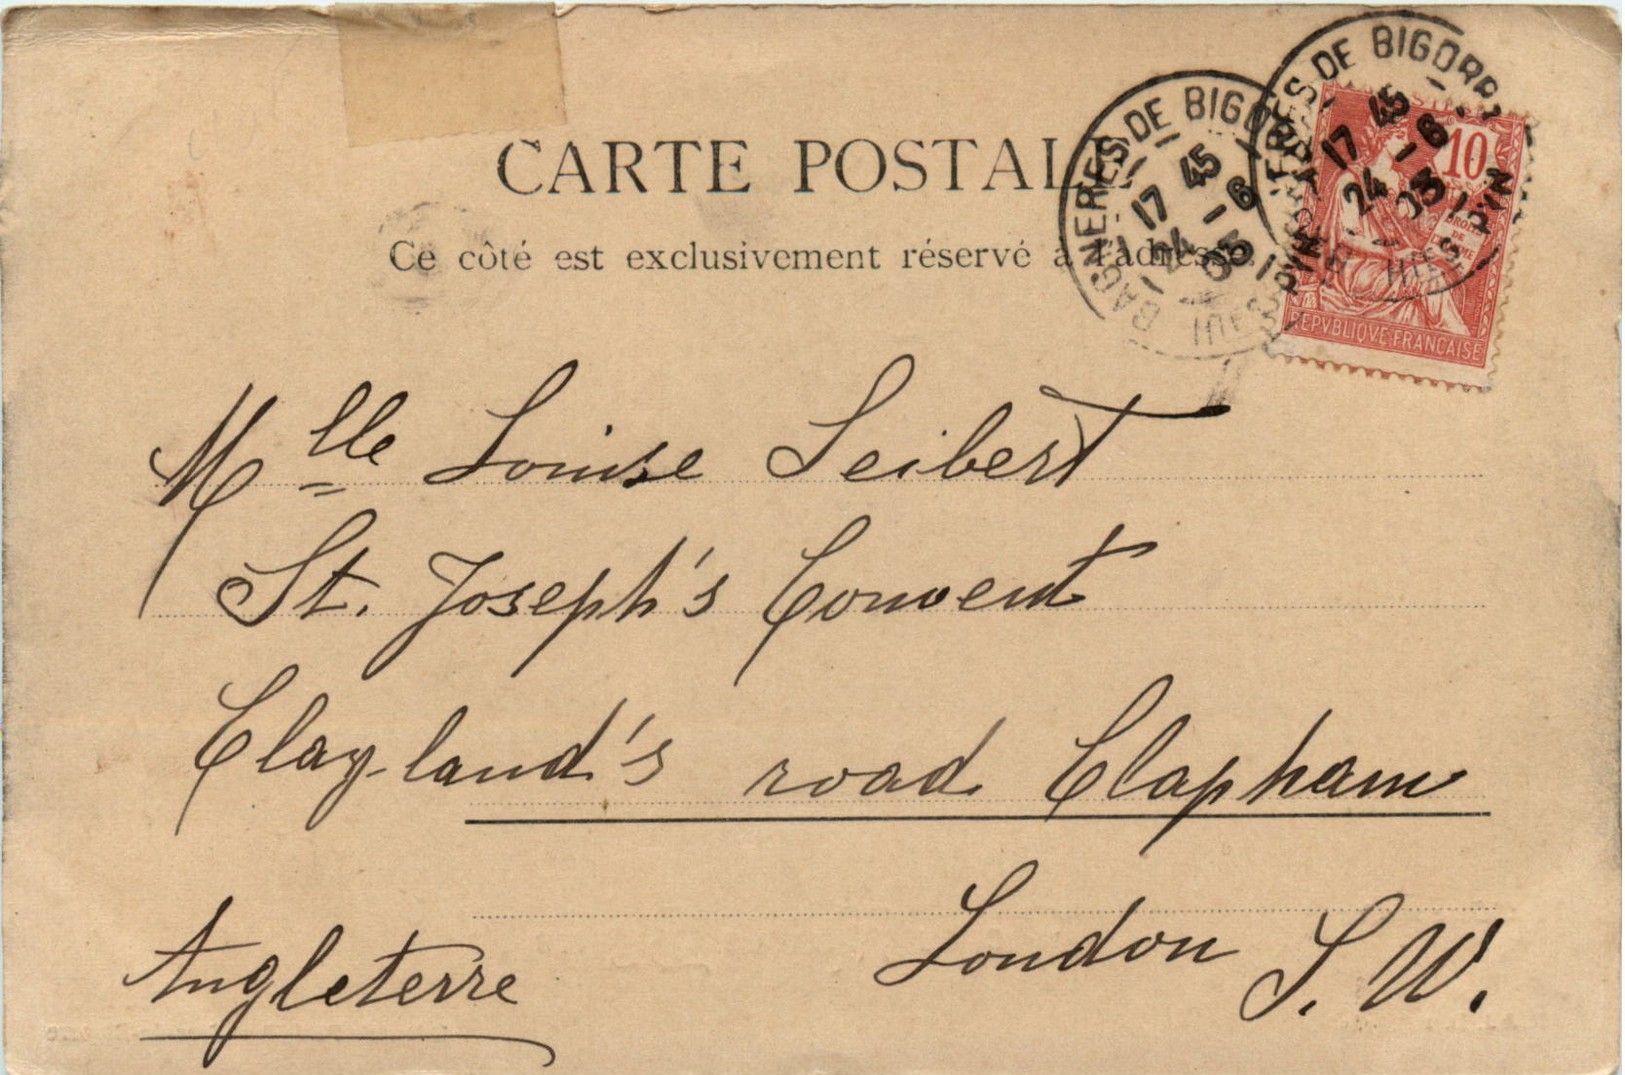 CARTE POSTALE
Ce côté est exclusivement réservé à l'adresse.
BAGNERES-DE BIGORRE
17 45
24 - 6
03
HTES PYRN
BAGNERES-DE BIGORRE
17 45
24 - 6
03
HTES PYRN
10
DROITS
DE
REPVBLIQVE FRANCAISE
Mlle Louise Seibert
St. Joseph's Convent
Clayland's road Clapham
London S.W.
Angleterre